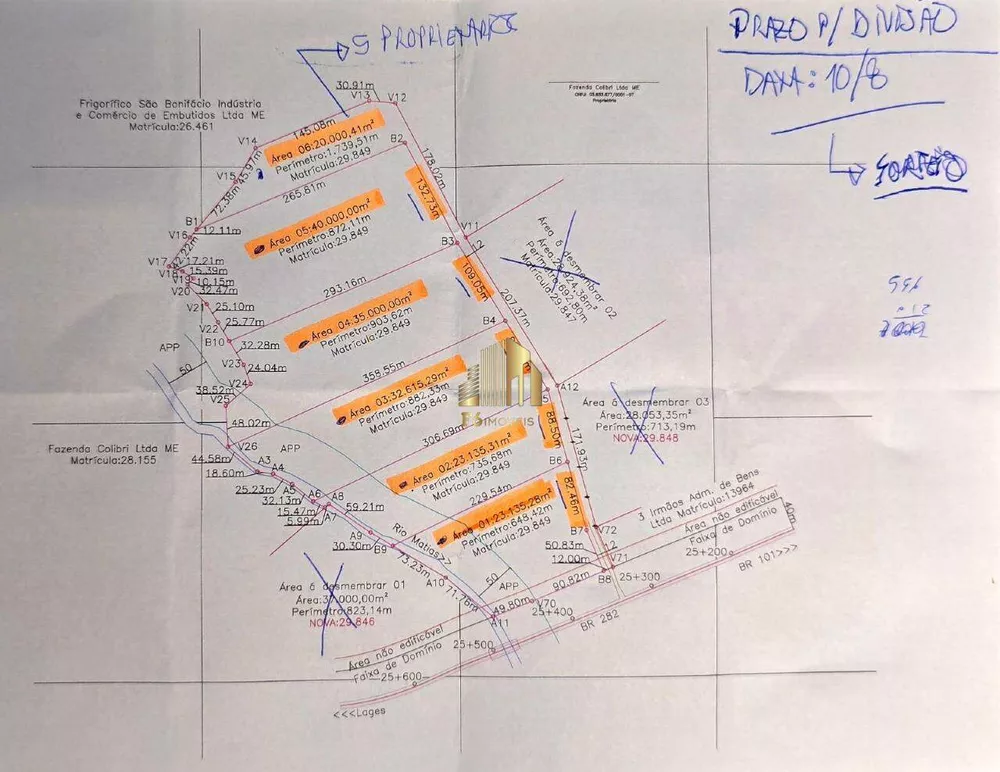 5 PROPRIETARIOS
PRAZO P/ DIVISÃO
DATA: 10/8
SORTEIO
Frigorífico São Bonifácio Indústria
e Comércio de Embutidos Ltda ME
Matrícula:26.461
Fazenda Colibri Ltda ME
Proprietário
30.91m
V13
V12
V14
145.08m
Área 06:20.000,41m²
Perímetro:1.739,51m
Matrícula:29.849
B2
178.02m
V15
45.97m
72.38m
265.81m
132.73m
B1
V16
12.11m
Área 05:40.000,00m²
Perímetro:872,11m
Matrícula:29.849
V11
B3
12
V17
17.21m
V18
15.39m
V19
10.15m
V20
32.47m
293.16m
109.05m
207.37m
Área à desmembrar 02
Matrícula:29.847
V21
25.10m
V22
25.77m
B10
32.28m
Área 04:35.000,00m²
Perímetro:903,62m
Matrícula:29.849
B4
APP
50
V23
24.04m
V24
38.52m
V25
358.55m
Área 03:32.615,29m²
Perímetro:882,33m
Matrícula:29.849
A12
Área à desmembrar 03
Área:28.053,35m²
Perímetro:713,19m
NOVA:29.848
48.02m
306.69m
88.50m
171.93m
IMÓVEIS
Fazenda Colibri Ltda ME
Matrícula:28.155
V26
44.58m
APP
A3
18.60m
A4
Área 02:23.135,31m²
Perímetro:735,68m
Matrícula:29.849
B6
25.23m
A5
32.13m
A6
A8
15.47m
A7
5.99m
59.21m
229.54m
87.46m
Área 01:23.135,28m²
Perímetro:648,42m
Matrícula:29.849
3 Irmãos Adm. de Bens
Ltda Matrícula:13964
Área não edificável
Faixa de Domínio
40m
A9
30.30m
B9
Rio Matias>>
73.23m
B7
V72
50.83m
12
12.00m
V71
B8
25+200
BR 101>>>
25+300
Área à desmembrar 01
Área:37.000,00m²
Perímetro:823,14m
NOVA:29.846
A10
71.76m
50
APP
90.82m
49.80m
V70
25+400
A11
BR 282
Área não edificável
Faixa de Domínio
25+500
25+600
<<<Lages